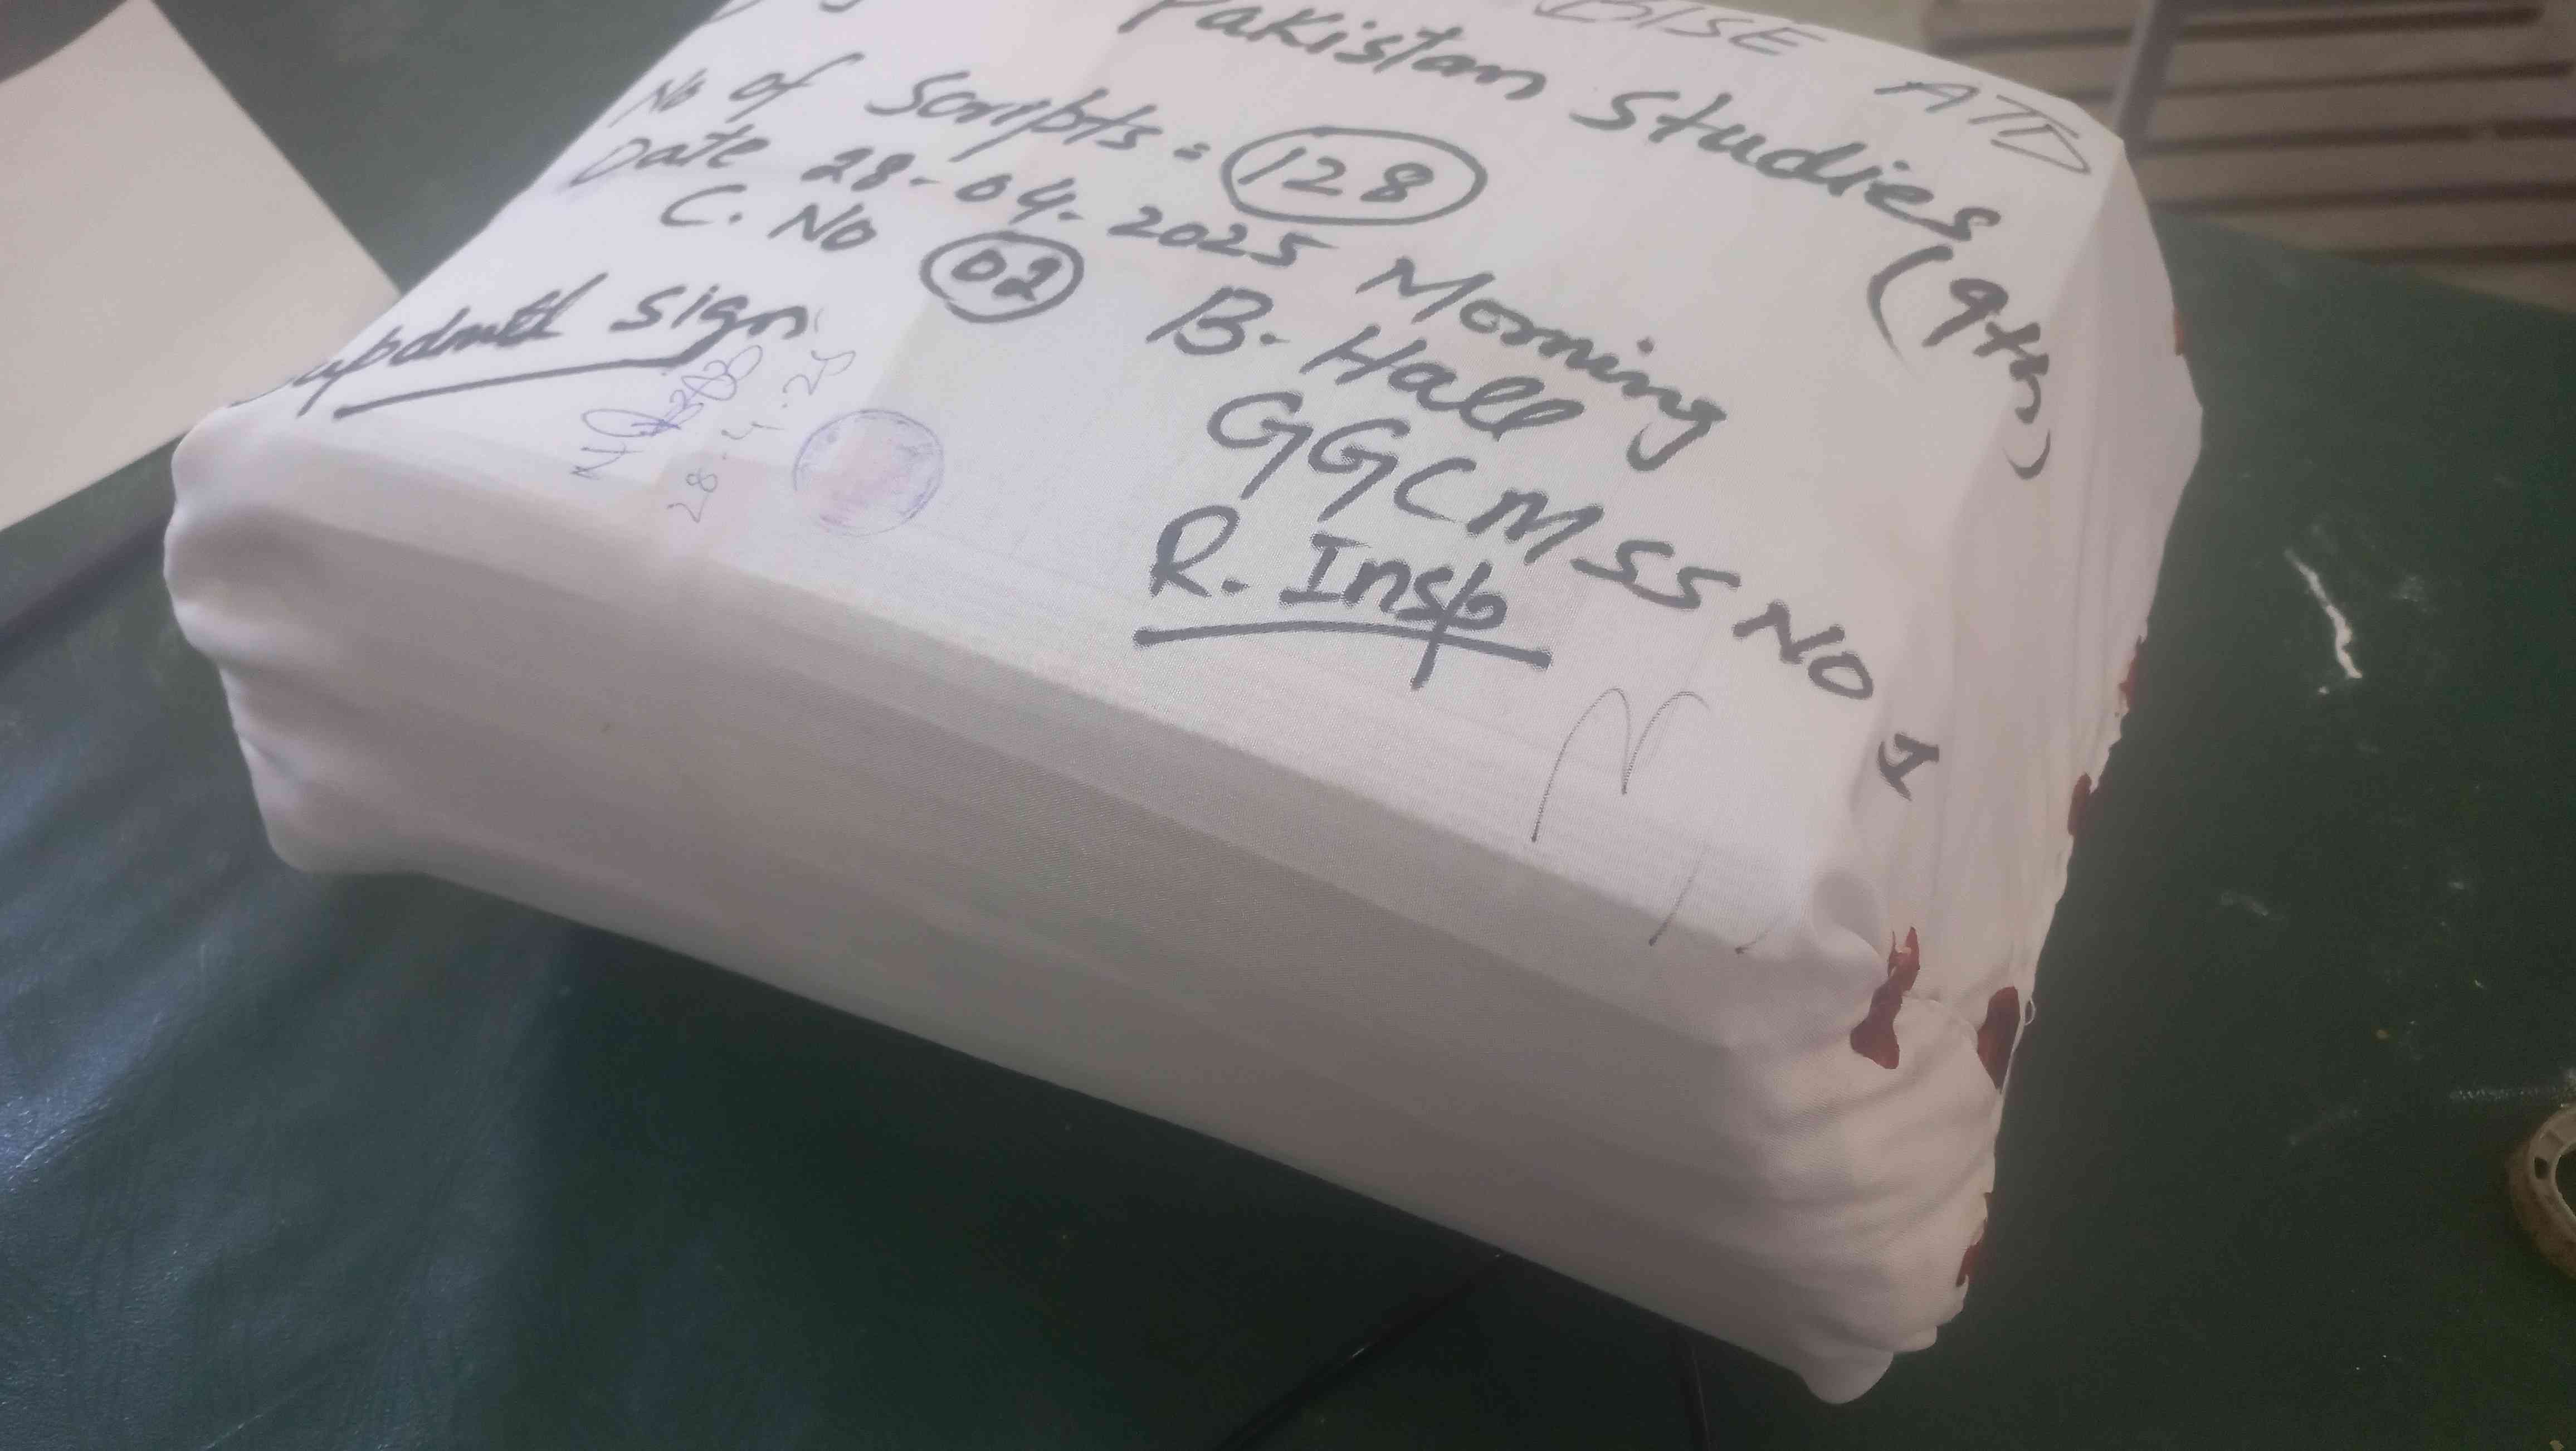 BISE ATD
Pakistan Studies (9th)
No of Scripts = 128
Date 28-04-2025 Morning
C. No 02 B. Hall
GGCMSS NO 1
Supdntt sign
R. Insp
28-4-25